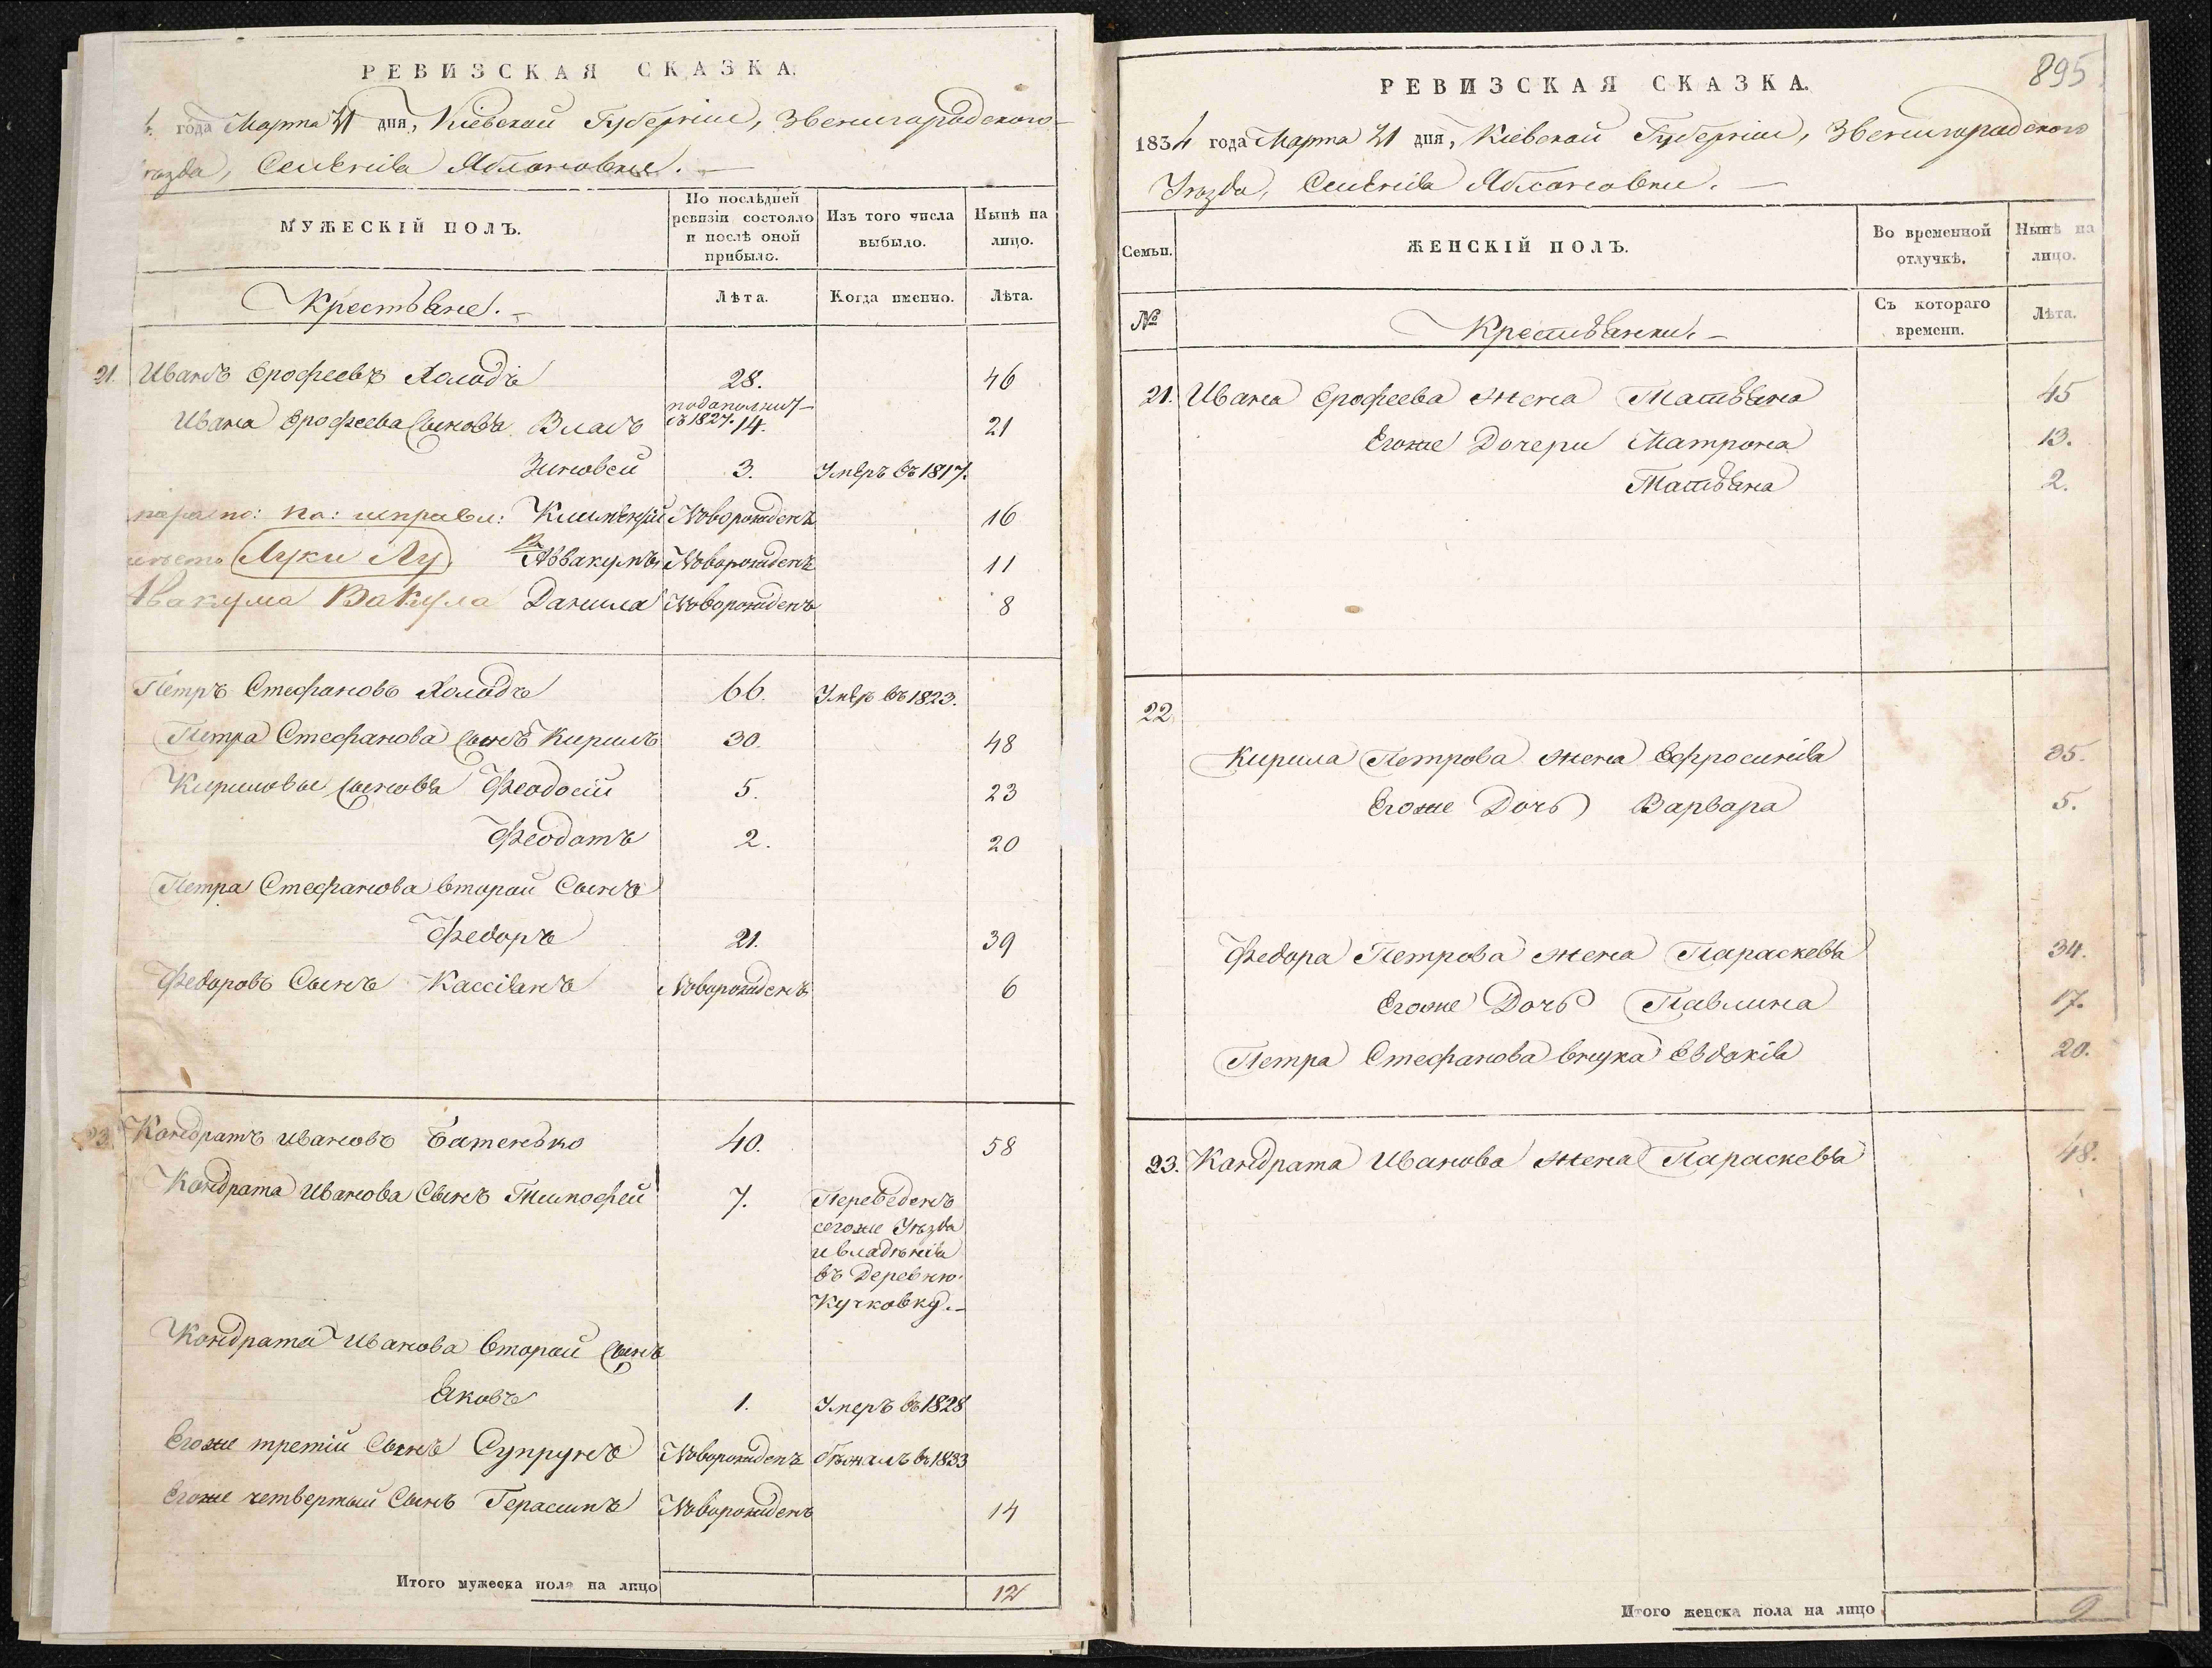 РЕВИЗСКАЯ СКАЗКА.
4. года Марта 21 дня, Кіевской Губерніи, Звенигородского
уезда, Селенія Яблоновки. —
МУЖЕСКІЙ ПОЛЪ.
По послѣдней ревизіи состояло и послѣ оной прибыло.
Изъ того числа выбыло.
Нынѣ на лицо.
Крестьяне. —
Лѣта.
Когда именно.
Лѣта.
21. Иванъ Ерофеевъ Холодъ 28. 46
Ивана Ерофеева Сыновья Власъ съ 1827. 14. 21
Зиновей 3. Умеръ въ 1817. 
Новорожденъ 16
Луки Лу Аввакумъ Новорожденъ 11
Авакума Вакула Данила Новорожденъ 8
Петръ Стефановъ Холодъ 66. Умеръ въ 1823.
Петра Стефанова сынъ Кирилъ 30. 48
Кириловы сыновья Феодосій 5. 23
Феодотъ 2. 20
Петра Стефанова вторай Сынъ
Федоръ 21. 39
Федоровъ Сынъ Кассіянъ Новорожденъ 6
23. Кондратъ Ивановъ Батенько 40. 58
Кондрата Иванова Сынъ Тимофей 7. Переведенъ
сегоже Уезда
и владѣнія
въ Деревню
Кучковку. —
Кондрата Иванова вторай сынъ
Яковъ 1. Умеръ въ 1828
Егоже третій Сынъ Супрунъ Новорожденъ бѣжалъ въ 1833
Егоже четвертый Сынъ Герасимъ Новорожденъ 14
Итого мужеска пола на лицо 12
895
РЕВИЗСКАЯ СКАЗКА.
1834 года Марта 21 дня, Кіевской Губерніи, Звенигородского
Уезда, Селенія Яблоновки. —
Семьи.
ЖЕНСКІЙ ПОЛЪ.
Во временной отлучкѣ.
Нынѣ на лицо.
№
Крестьянки. —
Съ котораго времени.
Лѣта.
21. Ивана Ерофеева жена Татьяна 45
Егоже Дочери Матрона 13.
Татьяна 2.
22.
Кирила Петрова жена Ефросинія 35.
Егоже Дочь Варвара 5.
Федора Петрова жена Параскевья 34.
Егоже Дочь Павлина 17.
Петра Стефанова внука Евдокія 20.
23. Кондрата Иванова жена Параскевья 48.
Итого женска пола на лицо 9